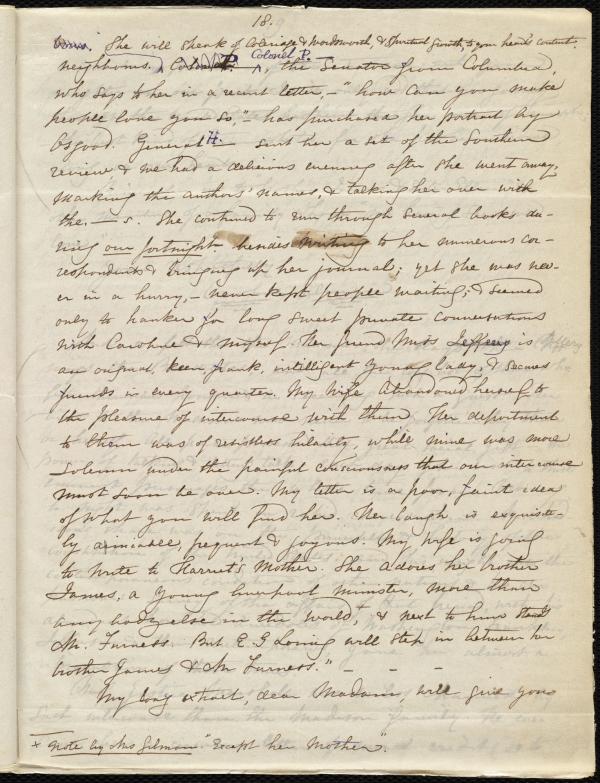 18.
She will speak of Coleridge & Wordsworth, & Spiritual Growth, to your heart's content.
neighboms. Colonel P. Colonel P. –, the Senator from Columbia,
who says to her in a recent letter, – "how can you make
people love you so," – has purchased her portrait by
Osgood. General H. sent her a set of the Southern
review & we had a delicious evening after she went away,
marking the authors' names, & talking her over with
the, — s. She contrived to run through several books du-
ring our fortnight. besides writing to her numerous cor-
respondents & bringing up her journal; yet she was nev-
er in a hurry, – never kept people waiting; & seemed
only to hanker for long sweet private conversations
with Caroline & myself. Her friend Miss Jeffery is Jeffery
an original, keen, frank, intelligent young lady, & secures
friends in every quarter. My Wife abandoned herself to
the pleasure of intercourse with them. Her deportment
to them was of resistless hilarity, while mine was more
solemn under the painful consciousness that our intercourse
must soon be over. My letter is a poor, faint idea
of what you will find her. Her laugh is exquisite-
ly amiable, frequent & joyous. My Wife is going
to write to Harriet's Mother. She adores her brother
James, a young liverpool minister, more than
any body else in the world, + & next to him stands
Mr. Furness. But E G Loring will step in between her
brother James & Mr Furness." – – –
My long extract, dear Madam, will give you
+ Note by Mrs Gilman "Except her Mother".